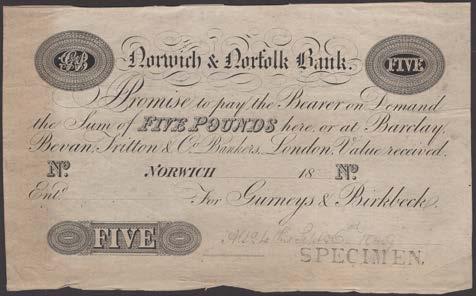 G&B
Norwich & Norfolk Bank.
FIVE
I Promise to pay the Bearer on Demand
the Sum of FIVE POUNDS here, or at Barclay,
Bevan, Tritton & Co. Bankers, London. Value received.
No. NORWICH 18 No.
Entd.
For Gurneys & Birkbeck.
FIVE
SPECIMEN.